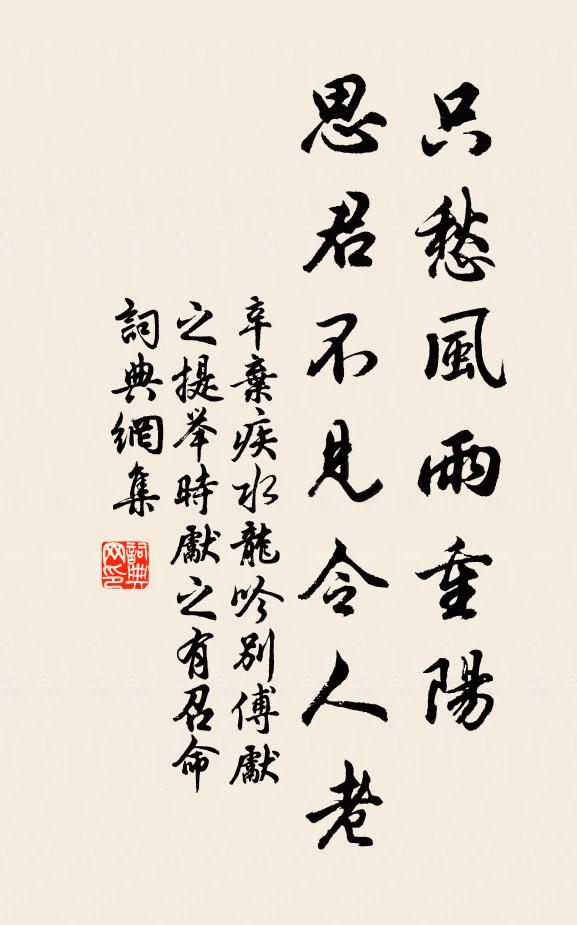 只愁風雨重陽
思君不見令人老
辛棄疾水龍吟別傅獻
之提举時獻之有召命
詞典網集
詞典网印